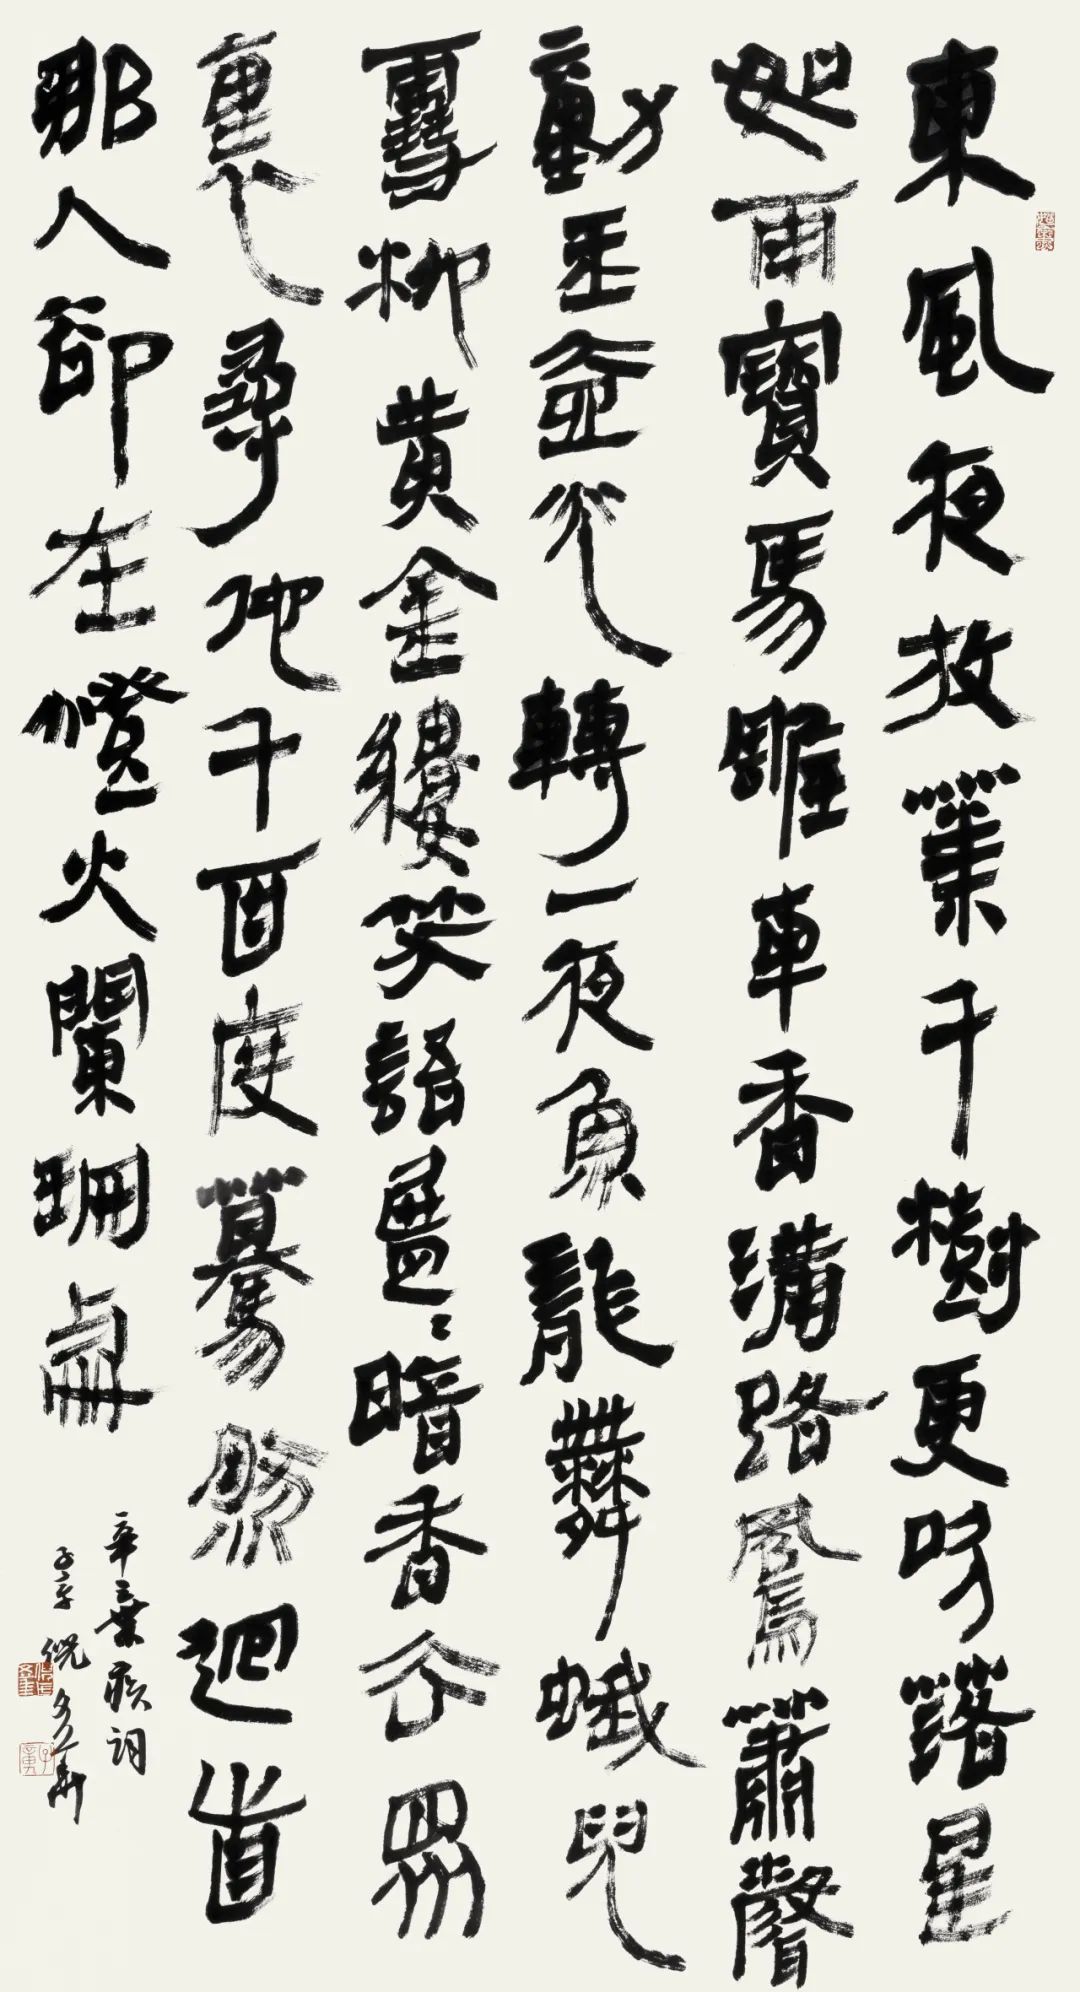 東風夜放華千樹更吹落星
如雨寶馬雕車香滿路鳳簫聲
動玉壺光轉一夜魚龍舞蛾兒
雪柳黃金縷笑語盈〻暗香去眾
裏尋他千百度驀然迴首
那人卻在燈火闌珊處
辛棄疾詞
子平倪多華